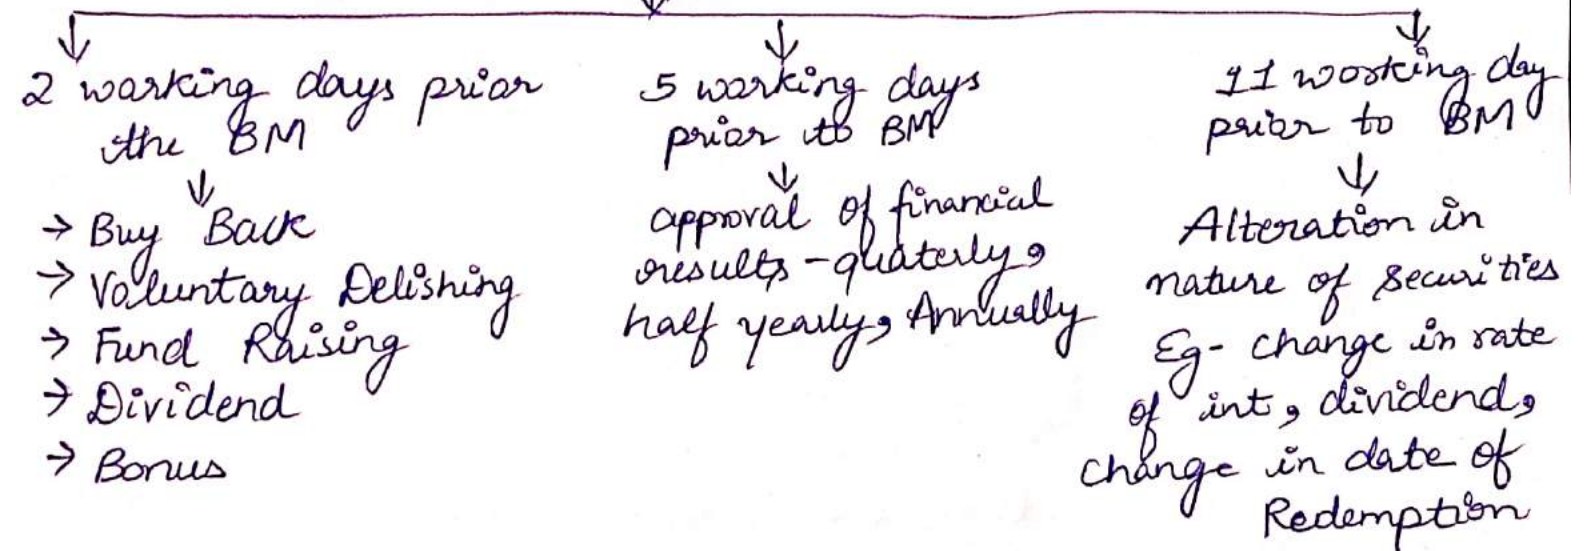 2 working days prior
the BM
→ Buy Back
→ Voluntary Delishing
→ Fund Raising
→ Dividend
→ Bonus
5 working days
prior to BM
approval of financial
results - quaterly,
half yearly, Annually
11 working day
prior to BM
Alteration in
nature of securities
Eg- change in rate
of int, dividend,
change in date of
Redemption